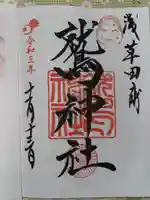 浅草田甫
鷲神社
令和三年
十一月十二日